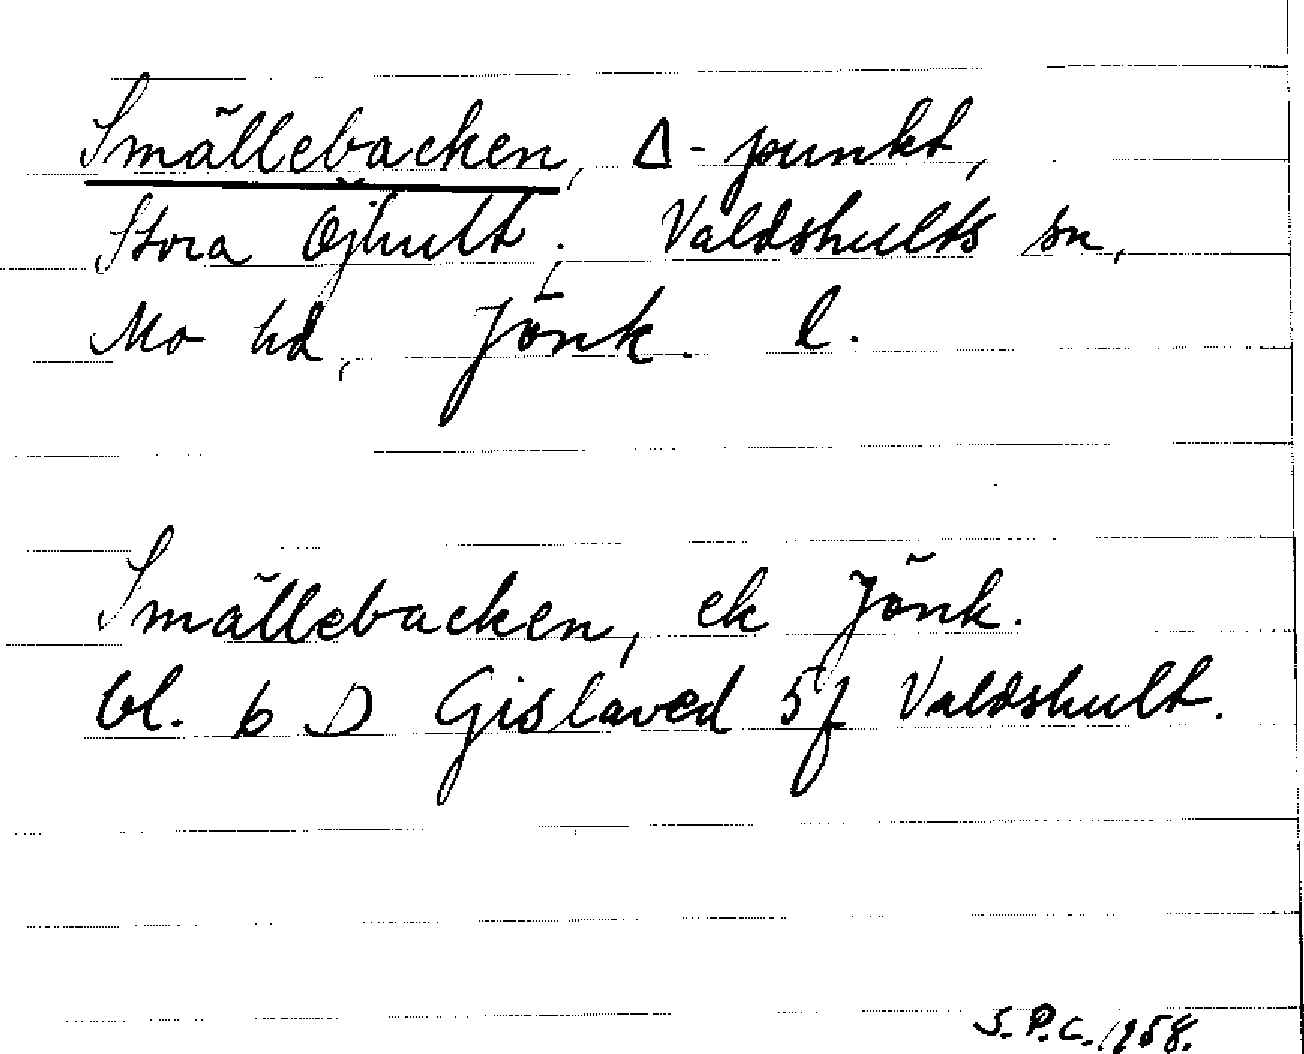 Smällebacken, Δ-punkt,
Stora Öjhult, Valdshults sn,
Mo hd, Jönk. l.
Smällebacken, ek Jönk.
bl. 6 D Gislaved 5f Valdshult.
S.P.C. 1958.